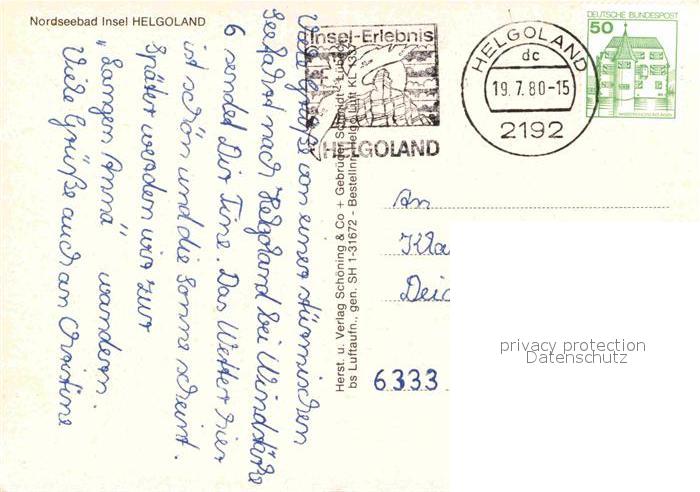 Nordseebad Insel HELGOLAND
Viele Grüße von einer stürmischen
Seefahrt nach Helgoland bei Windstärke
6 sendet Dir Tine. Das Wetter hier
ist schön und die Sonne scheint.
Später werden wir zur
„Langen Anna" wandern.
Viele Grüße auch an Christine
Herst. u. Verlag Schöning & Co + Gebrüder Schmidt
bs Luftaufn., gen. SH 1-31672 - Bestellnr. Helgo Luft KL
Insel-Erlebnis
HELGOLAND
HELGOLAND
dc
19.7.80-15
2192
DEUTSCHE BUNDESPOST
50
An
6333
privacy protection
Datenschutz